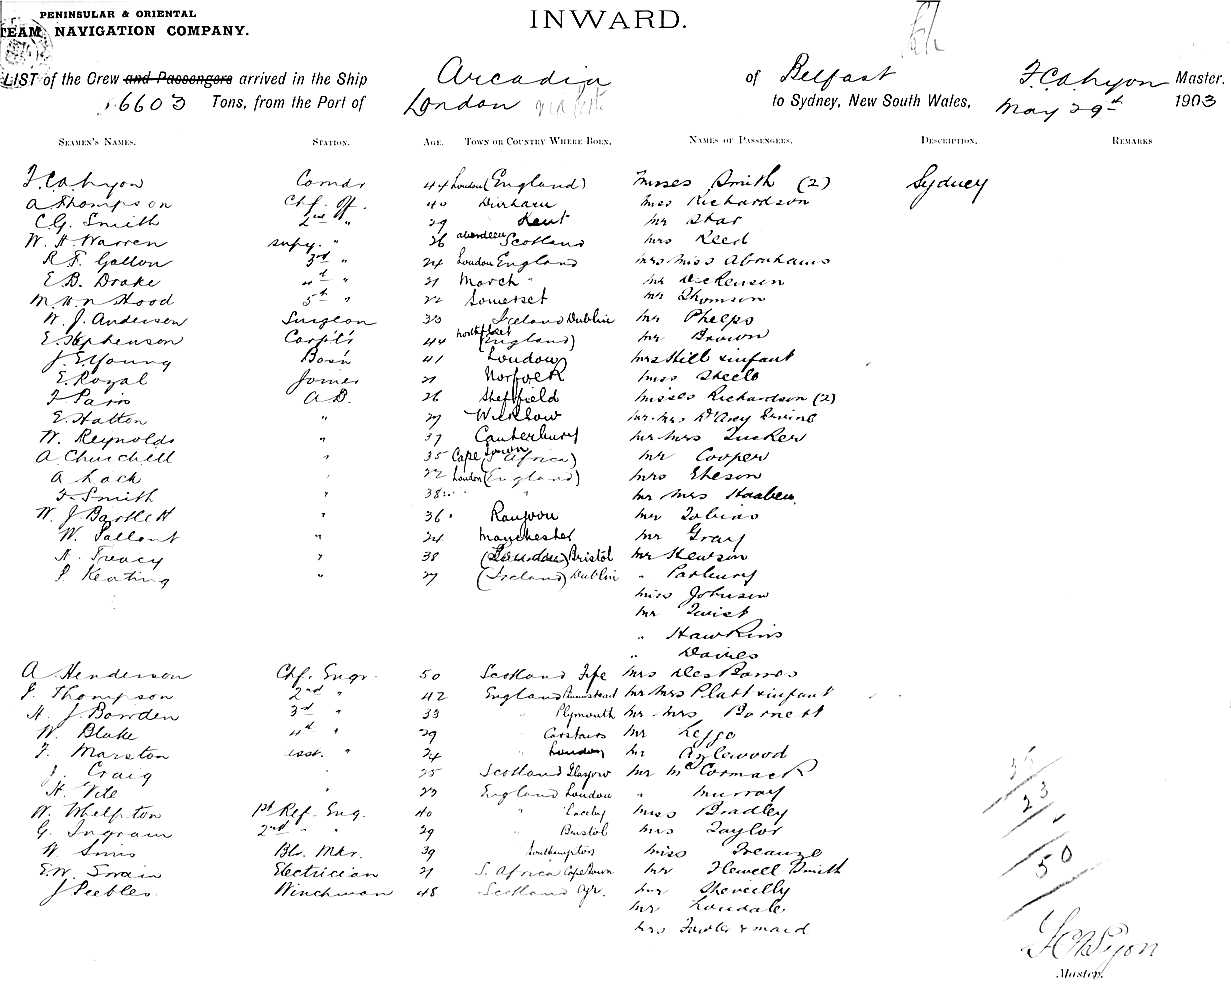 PENINSULAR & ORIENTAL
TEAM NAVIGATION COMPANY.
INWARD.
LIST of the Crew and Passengers arrived in the Ship Arcadia of Belfast F.C.A. Lyon Master.
6603 Tons, from the Port of London to Sydney, New South Wales, May 29th 1903
SEAMEN'S NAMES. STATION. AGE. TOWN OR COUNTRY WHERE BORN, NAMES OF PASSENGERS. DESCRIPTION. REMARKS
F.C.A. Lyon Comdr 44 London (England) Misses Smith (2) Sydney
A Thompson Chf. Off. 40 Durham Miss Richardson
C.G. Smith 2nd " 29 Kent Mr Star
W. H. Warren supy. " 26 Aberdeen Scotland Mrs Reed
R.F. Galton 3rd " 24 London England Mrs Miss Abrahams
E.B. Drake 4th " 21 March " Mr Dickenson
Hood 5th " 22 Somerset Mr Thomson
W. J. Anderson Surgeon 33 Ireland Dublin Mr Phelps
E. Stephenson Carptr 44 Northfleet (England) Mr Brown
J. E. Young Bosn 41 London Mrs Hill & infant
E. Royal Joiner 21 Norfolk Miss Steele
F Paris A.B. 26 Sheffield Misses Richardson (2)
E. Hatton " 27 Wicklow Mr Mrs D'Arcy Irvine
W. Reynolds " 37 Canterbury Mr Mrs Tucker
A Churchill " 35 Cape Town (S Africa) Mr Cooper
A Lack " 22 London (England) Mrs
F. Smith " 38 " " Mr Mrs
W. J Bartlett " 36 Rangoon Mr Tobins
W. Pallant " 24 Manchester Mr Gray
H. Treacy " 38 (London) Bristol Mr Hewson
J. Keating " 27 (Ireland) Dublin " Parbury
Miss Johnson
Mr Twist
" Hawkins
" Davies
A Henderson Chf. Engr. 50 Scotland Fife Mrs Des Barres
J. Thompson 2nd " 42 England Plumstead Mr Mrs Platt & infant
H. J Bowden 3rd " 33 " Plymouth Mr Mrs Barnett
W. Blake 4th " 29 " Carstairs Mr Legge
F. Marston asst. " 24 " London Mr Aylewood
J. Craig " 25 Scotland Glasgow Mr McCormack
H. Vile " 23 England London " Murray
W. Whelpton 1st Ref. Eng. 40 " Miss Bradley
G. Ingram 2nd " " 29 " Bristol Mrs Taylor
W Sims Blr. Mkr. 39 Southampton Miss
E.W. Swain Electrician 21 S. Africa Cape Town Mr Flewell Smith
J Peebles Winchman 48 Scotland Ayr. Mr
Mr Lonsdale
Mrs Fowler & maid
23
50
F.C.A. Lyon
Master.